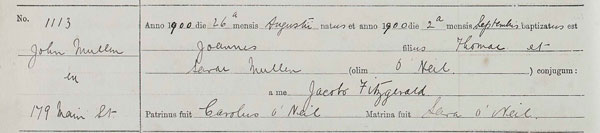 No. 1113
John Mullen
en
179 Main St
Anno 1900 die 26ª mensis Augusti natus et anno 1900 die 2ª mensis Septembris baptizatus est
Joannes filius Thomae et
Sarae Mullen (olim O'Neil) conjugum:
a me Jacobo Fitzgerald
Patrinus fuit Carolus O'Neil Matrina fuit Sara O'Neil.